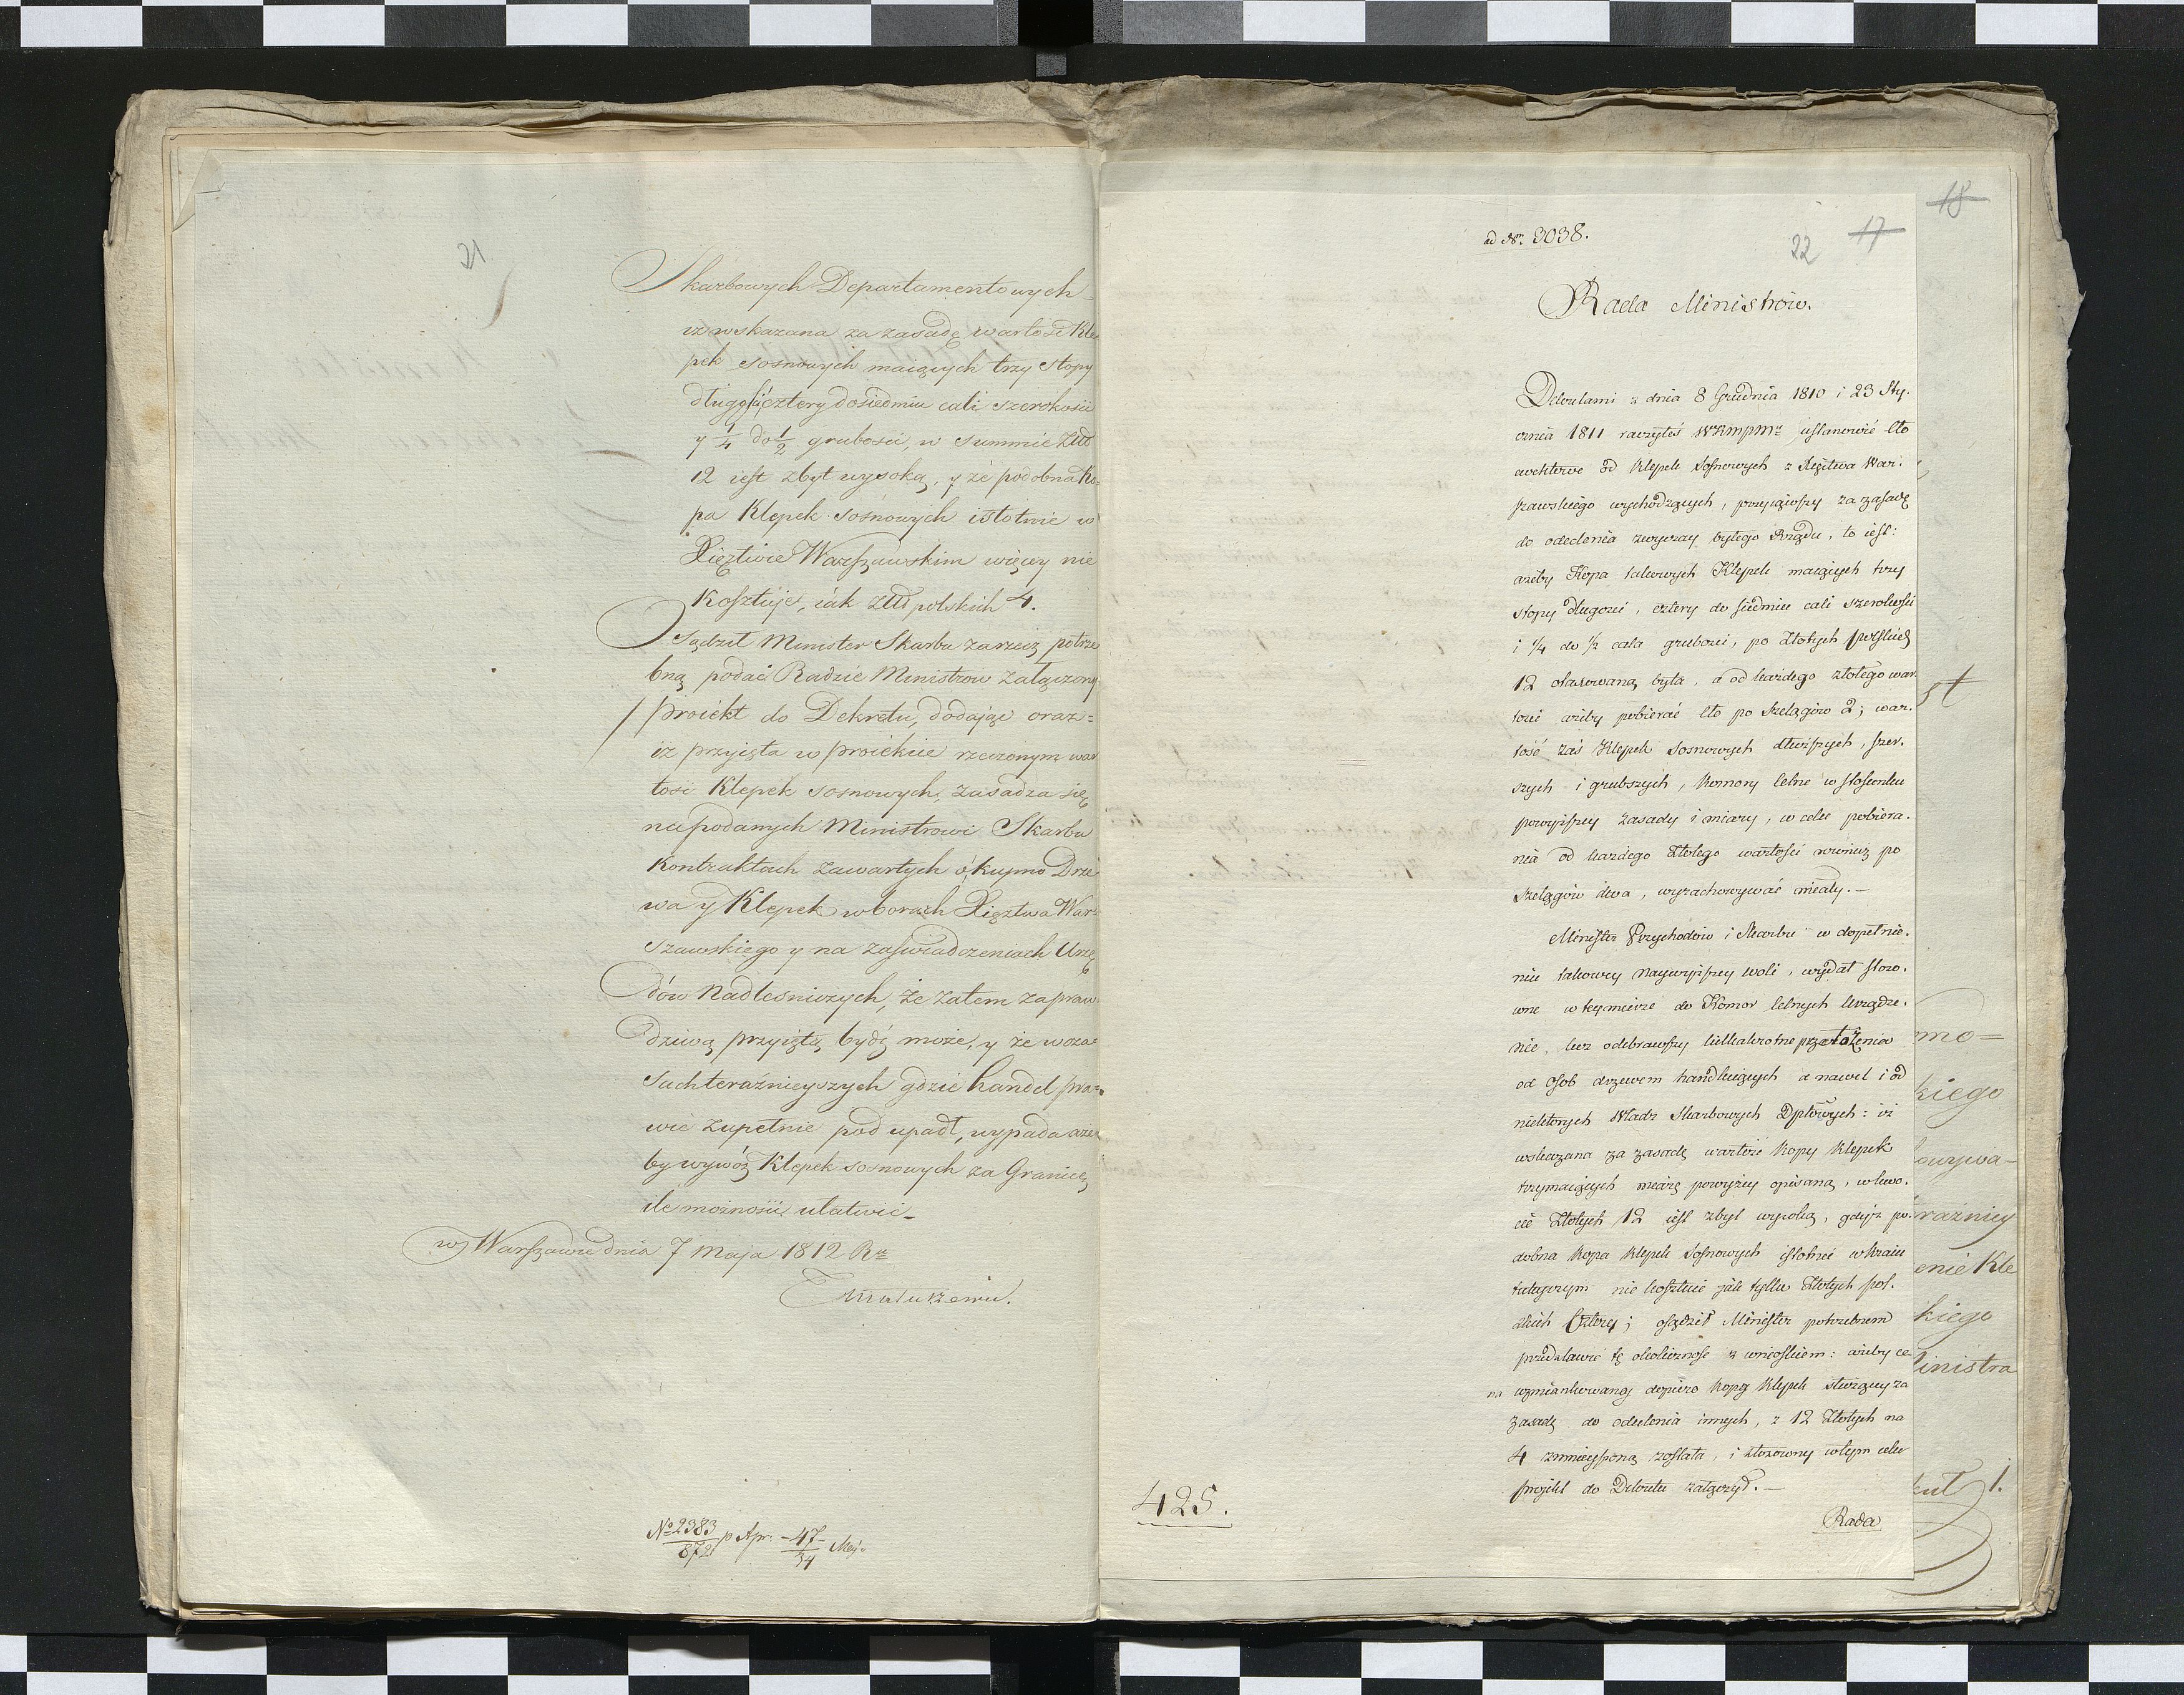 21
Skarbowych Departamentowych
iż wskazana za zasadę wartość Kle
pek sosnowych maiących trzy stopy
długości cztery do siedmiu cali szerokości
y 1/4 do 1/2 grubości, w summie Złło
12 iest zbyt wysoką, y że podobna Ko-
pa Klepek sosnowych istotnie w
Xięztwie Warszawskim więcey nie
Kosztuje, iak Złło polskich 4.
Sądził Minister Skarbu za rzecz potrze
bną podać Radzie Ministrow załączony
/ proiekt do Dekretu, dodając oraz=
iż przyięta w proiekcie rzeczonym war
tość Klepek sosnowych, zasadza się
na podanych Ministrowi Skarbu
Kontraktach zawartych o kupno Drze
wa y Klepek w borach Xięztwa War=
szawskiego y na zaświadczeniach Urzę
dów Nadleśniczych, że zatem za praw
dziwą przyiętą bydź może, y że w cza=
sach teraźnieyszych gdzie handel pra=
wie zupełnie podupadł, wypada aże
by wywóz Klepek sosnowych za Granicę
ile możności ułatwić_
w Warszawie dnia 7 Maja 1812 Rr
TMatuszewic.
No 2383/872 p Apr: 47/34 Maj.
18
17
22
ad Nr. 3038.
Rada Ministrów.
Dekretami z dnia 8 Grudnia 1810 i 23 Sty-
cznia 1811 raczyłeś WKmpMć ustanowić Cło
wchodowe od Klepek sosnowych z Xięztwa War-
szawskiego wychodzących, przyiąwszy za zasadę
do oclenia zwyczay byłego Rządu, to iest:
ażeby Kopa takowych Klepek maiących trzy
stopy długości, cztery do siedmiu cali szerokości
i 1/4 do 1/2 cala grubości, po Złotych polskich
12 otaxowaną była, a od każdego złotego war-
tości ażeby pobierać Cło po Szelągów 2; war-
tość zaś Klepek sosnowych dłuższych, szer-
szych i grubszych, Komory celne w stosunku
powyższey zasady i miary, w celu pobiera-
nia od każdego złotego wartości również po
szelągów dwa, wyrachowywać miały.—
Minister Przychodów i Skarbu w dopełnie-
niu takowey naywyższey woli, wydał stoso-
wne w tey mierze do Komor celnych Urządze-
nie, lecz odebrawszy kilkakrotne przełożenia
od osob drzewem handluiących a nawet i od
niektorych Władz Skarbowych Dptowych: iż
wskazana za zasadę wartość Kopy Klepek
trzymaiących miarę powyżey opisaną, w kwo-
cie Złotych 12 iest zbyt wysoką, gdyż po-
dobna Kopa Klepek sosnowych istotnie w kraiu
tuteyszym nie kosztuie jak tylko Złotych pol-
skich Cztery; osądził Minister potrzebnem
przedstawić tę okoliczność z wnioskiem: ażeby ce-
na wzmiankowaney dopiero Kopy Klepek służącey za
zasadę do oclenia innych, z 12 Złotych na
4 zmnieyszoną została, i stosowny w tym celu
projekt do Dekretu załączył.—
Rada
425.
mo=
kiego
owywa-
raźniey
enie Kle
kiego
inistra
kuł 1.